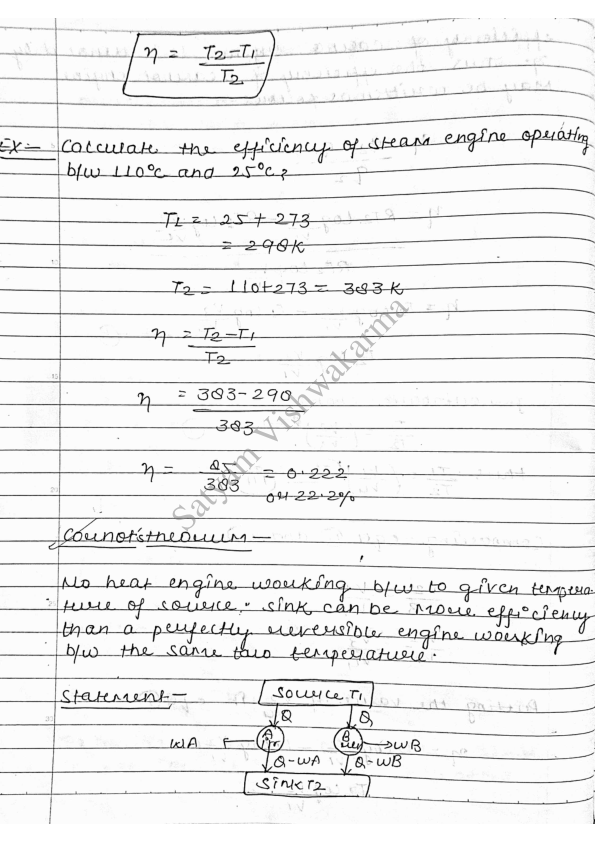 η = T2-T1
T2
EX:- Calculate the efficiency of steam engine operating
b/w 110°C and 25°C?
T1 = 25 + 273
= 298K
T2 = 110+273 = 383K
η = T2-T1
T2
η = 383-298
383
η = 85 = 0.222
383 or 22.2%
Carnot's theorum-
No heat engine working b/w to given tempera-
ture of source. sink can be more efficiency
than a perfectly reversible engine working
b/w the same two temperature.
Statement- Source T1
Q Q
WA A irr B rev WB
Q-WA Q-WB
Sink T2
Satyam Vishwakarma